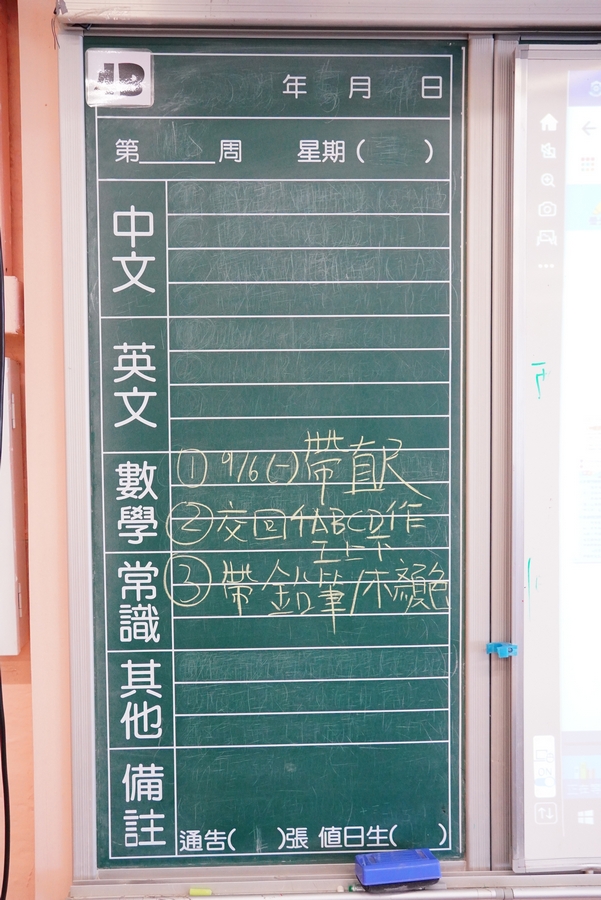 4B
年 月 日
第______周 星期（ ）
中文
英文
數學
① 9/6(一)帶直尺
② 交回 ABCD作
工上下
常識
③ 帶鉛筆/木顏色
其他
備註
通告( )張 值日生( )